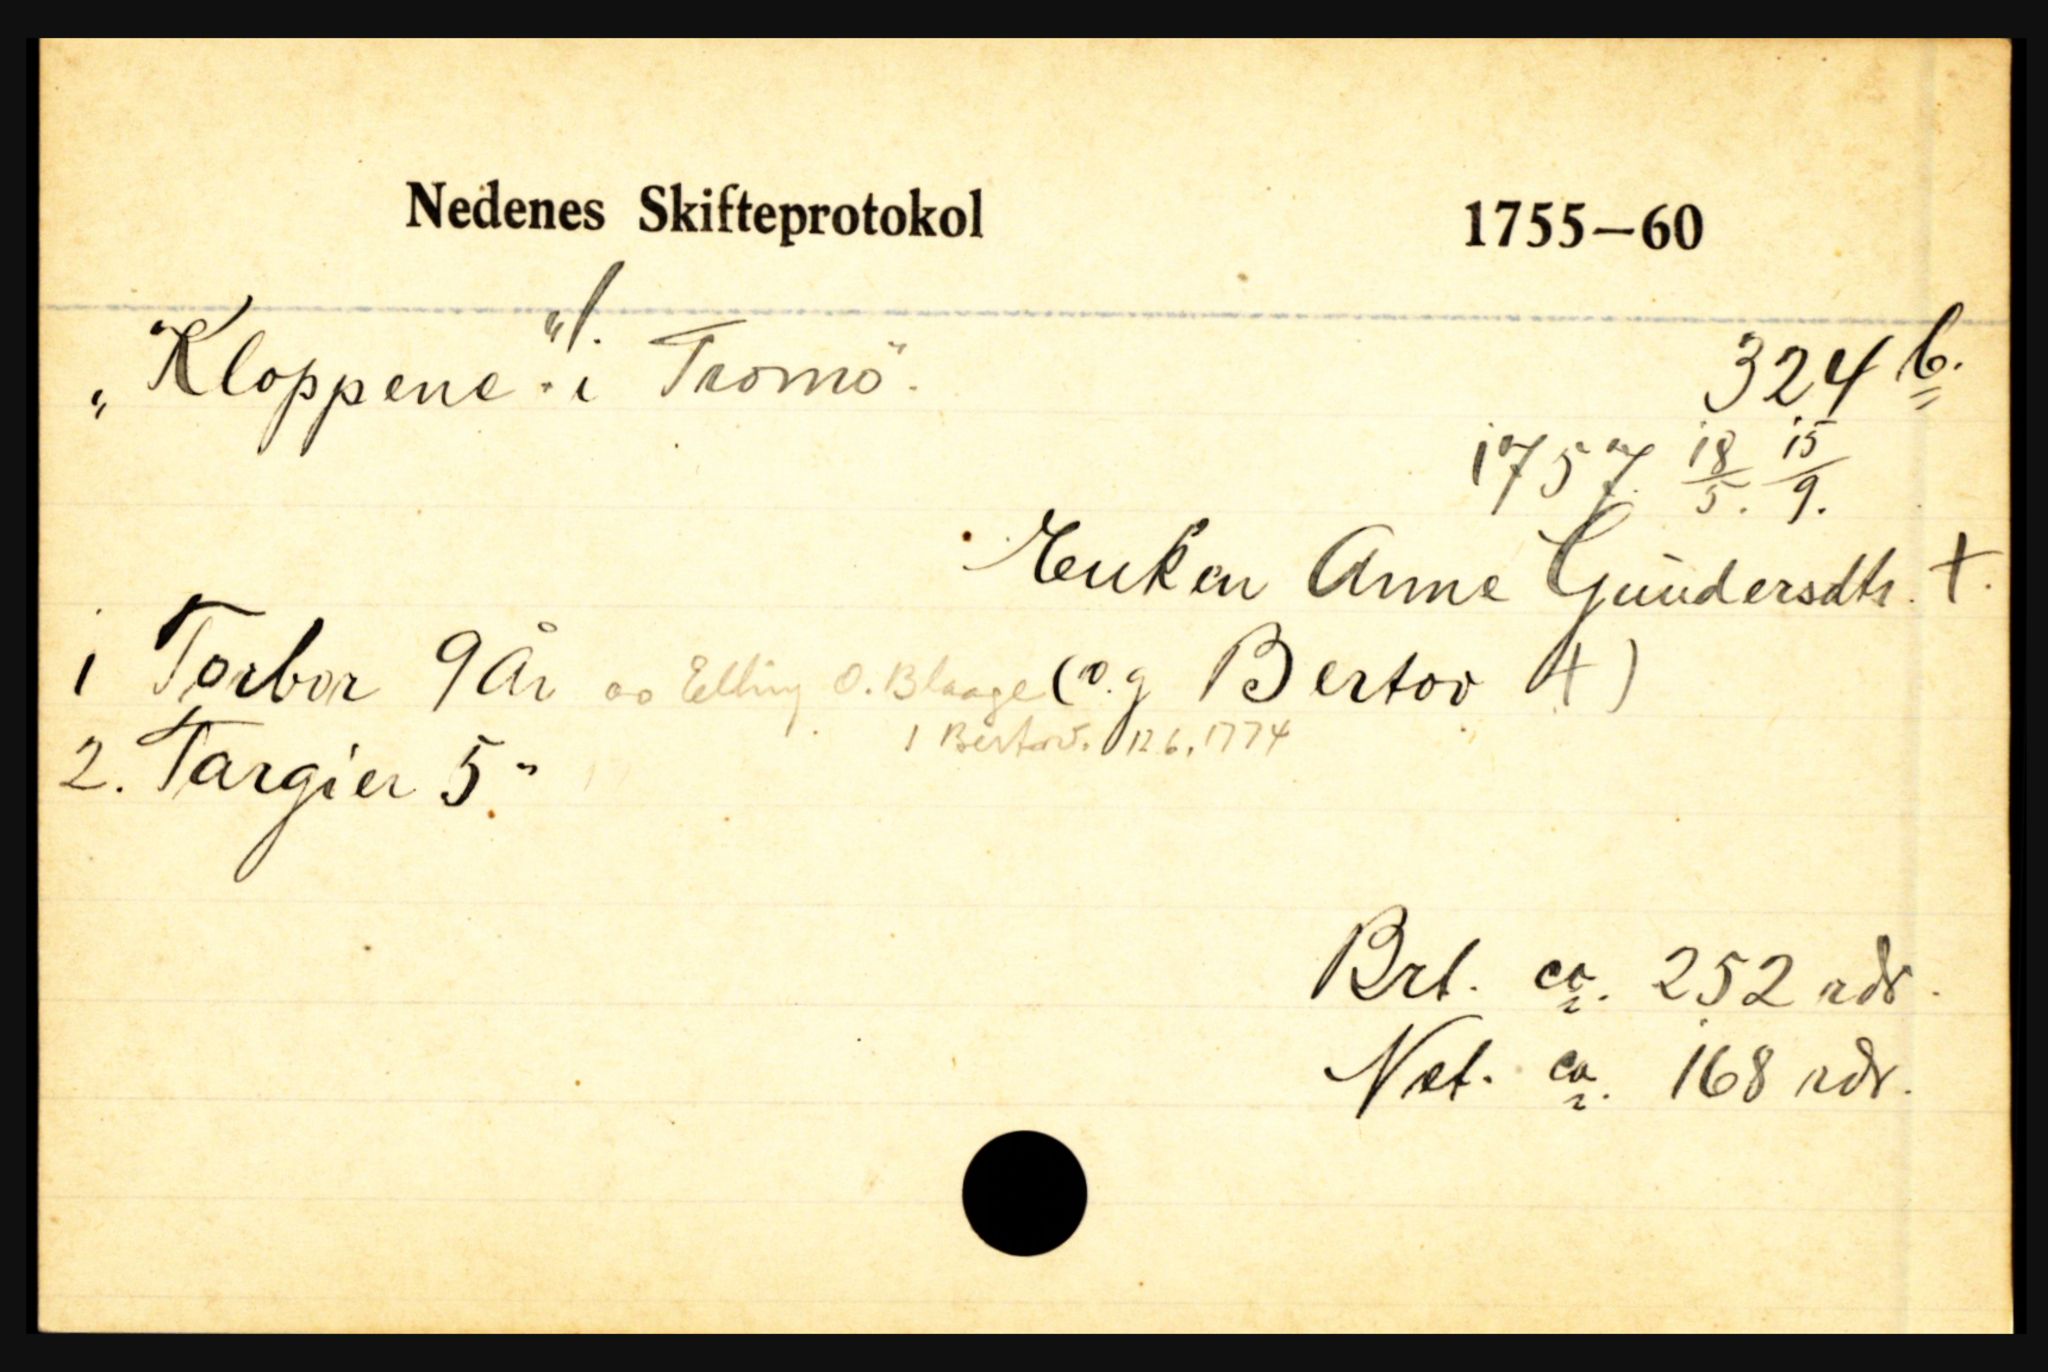 Nedenes Skifteprotokol 1755—60
„Kloppene" i Tromö. 324 b.
1757 18/5. 15/9.
Enken Anne Gundersdtr. †.
1 Torbor 9 År oo Elling O. Blaage (og Bertov †)
1 Bertov. 12 6. 1774
2. Targier 5 "
Brt. ca. 252 rdr.
Net. ca. 168 rdr.